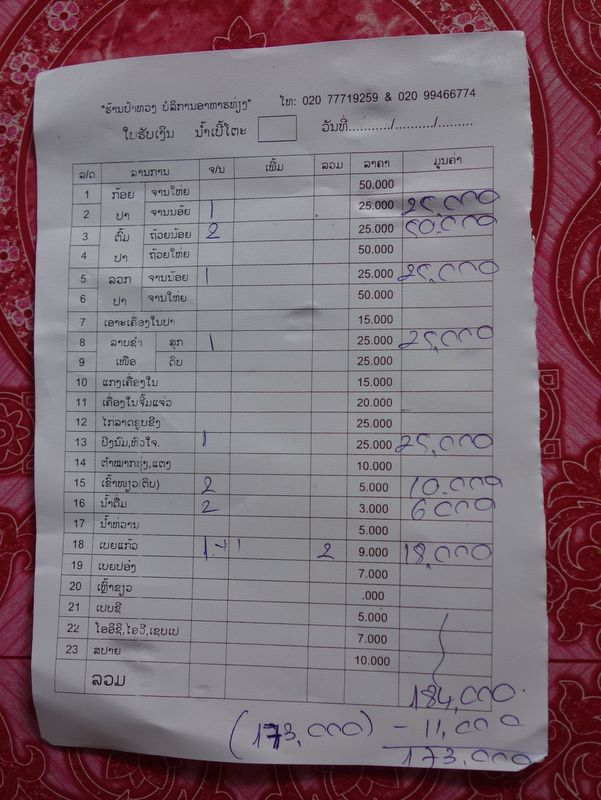 "ຮ້ານປ້າທວງ ບໍລິການອາຫານທ່ຽງ" ໂທ: 020 77719259 & 020 99466774
ໃບຮັບເງິນ ນ້ຳເບີ້ໂຕະ ວັນທີ່............/............/..........
ລ/ດ ລານການ ຈ/ນ ເພີ້ມ ລວມ ລາຄາ ມູນຄ່າ
1 ກ້ອຍ ຈານໃຫ່ຍ 50.000
2 ປາ ຈານນ້ອຍ 1 25.000 25,000
3 ຕົ້ມ ຖ້ວຍນ້ອຍ 2 25.000 50.000
4 ປາ ຖ້ວຍໃຫ່ຍ 50.000
5 ລວກ ຈານນ້ອຍ 1 25.000 25,000
6 ປາ ຈານໃຫ່ຍ 50.000
7 ເອາະເຄື່ອງໃນປາ 15.000
8 ລາບຊຳ ສຸກ 1 25.000 25,000
9 ເໜືອ ດິບ 25.000
10 ແກງເຄື່ອງໃນ 15.000
11 ເຄື່ອງໃນຈີ້ມແຈ່ວ 20.000
12 ໄກ່ລາດຊູບຂີງ 25.000
13 ປີ້ງນົມ,ຫົວໃຈ. 1 25.000 25,000
14 ຕຳໝາກຮຸ່ງ,ແຕງ 10.000
15 ເຂົ້າໜຽວ(ຕິບ) 2 5.000 10.000
16 ນ້ຳດື່ມ 2 3.000 6000
17 ນ້ຳຫ່ວານ 5.000
18 ເບຍແກ້ວ 1+1 2 9.000 18,000
19 ເບຍປອ໋ງ 7.000
20 ເຫຼົ້າຂຽວ .000
21 ເປບຊີ 5.000
22 ໂອອິຊິ,ໄອວີ,ເຊບເປ 7.000
23 ສປາຍ 10.000
ລວມ 184,000.
(173,000) - 11,000
173,000